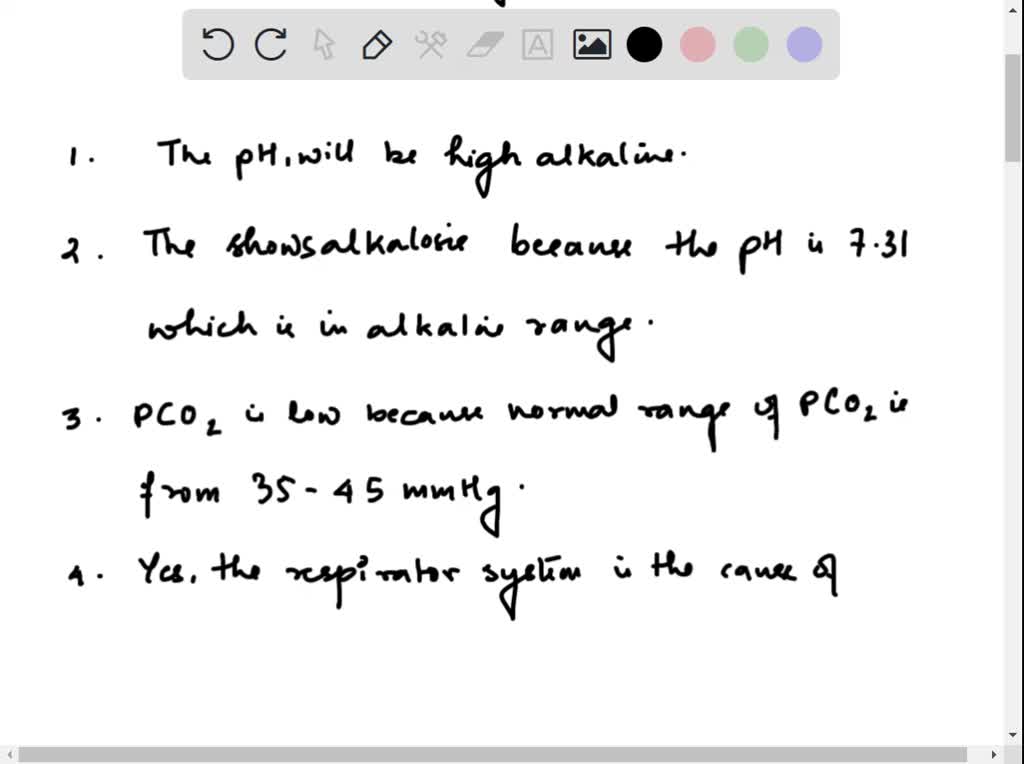 1. The pH, will be high alkaline.
2. The shows alkalosis because the pH is 7.31
which is in alkalie range.
3. PCO2 is low because normal range of PCO2 is
from 35-45 mmHg.
4. Yes, the respirator system is the cause of